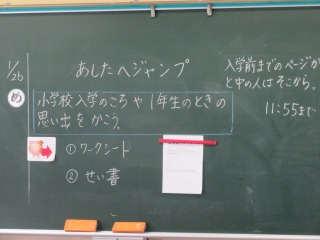 1/26
あしたへジャンプ
め
小学校入学のころや1年生のときの
思い出をかこう。
①ワークシート
②せい書
入学前までのページが
と中の人はそこから。
11:55まで